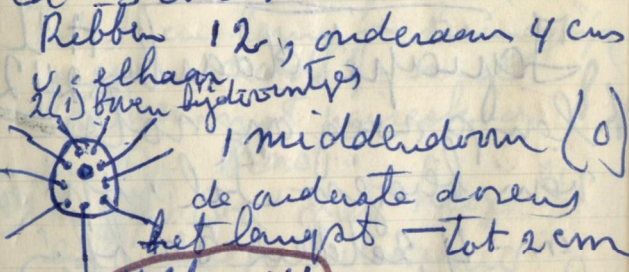 Ribben 12, onderaan 4 cm
v. elkaar
2(1) boven bijdoorntjes
1 middendoorn (0)
de onderste dorens
het langst — tot 2 cm